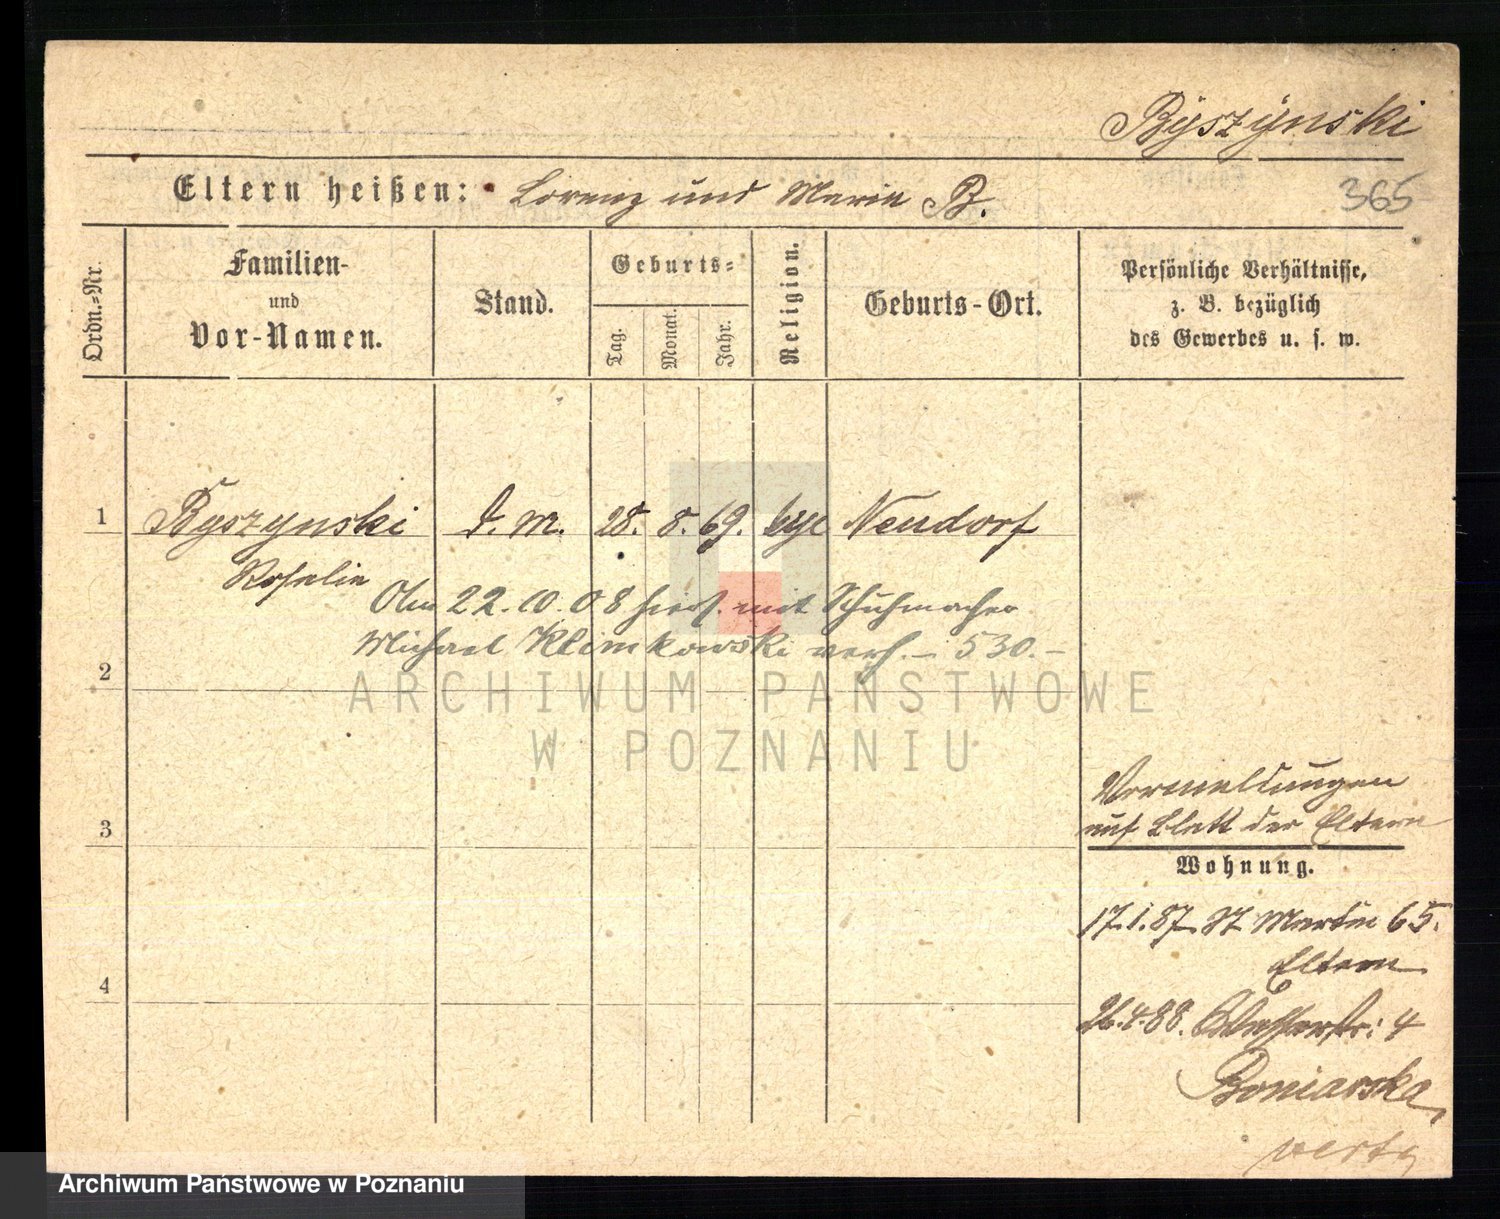 Byszynski
Eltern heißen: Lorenz und Maria B.
365
Ordn.=Nr.
Familien-
und
Vor-Namen.
Stand.
Geburts=
Tag.
Monat.
Jahr.
Religion.
Geburts-Ort.
Persönliche Verhältnisse,
z. B. bezüglich
des Gewerbes u. s. w.
1
Byszynski
D. M.
28. 8. 69.
Neudorf
Rosalie
22.10.08 hiers. mit Schuhmacher
Michael Klimkowski verh. – 530.–
2
ARCHIWUM PAŃSTWOWE
W POZNANIU
3
Vermeldungen
auf Blatt der Eltern
Wohnung.
17.1.87. St Martin 65.
Eltern
4
26.4.88. 4
Boniarska
verte
Archiwum Państwowe w Poznaniu